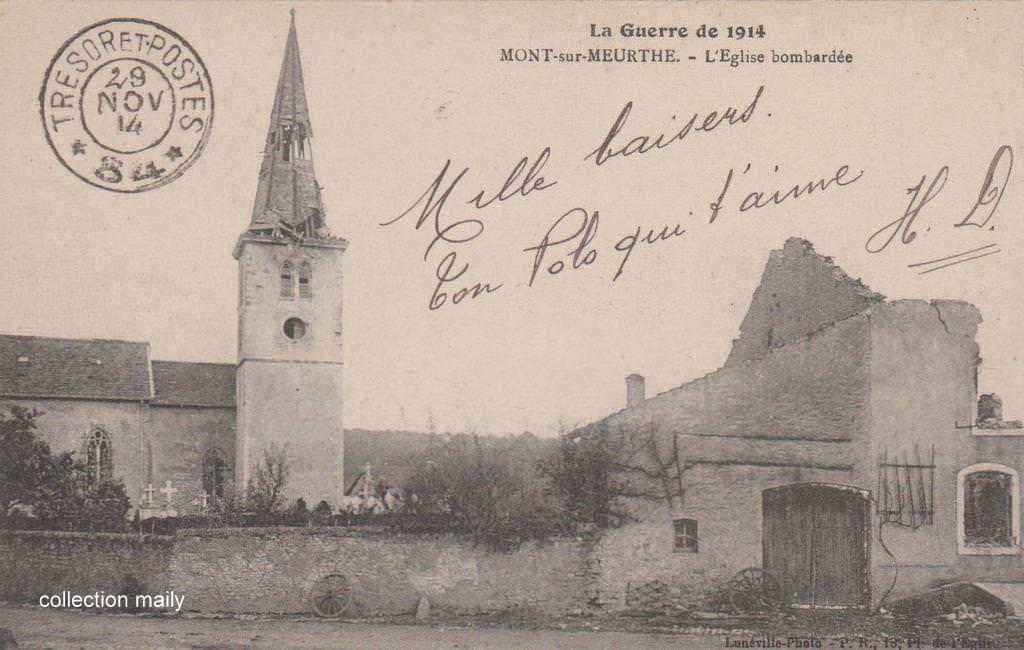 La Guerre de 1914
MONT-sur-MEURTHE. - L'Eglise bombardée
TRESOR ET POSTES
29
NOV
14
★ 84 ★
Mille baisers.
Ton Polo qui t'aime
H. D.
collection maily
Lunéville-Photo - P. R., 13, Pl. de l'Eglise